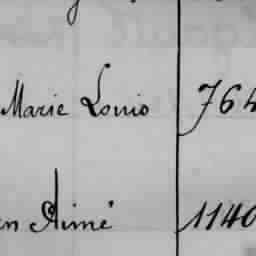 Marie Louis 764
en Aimé 1140